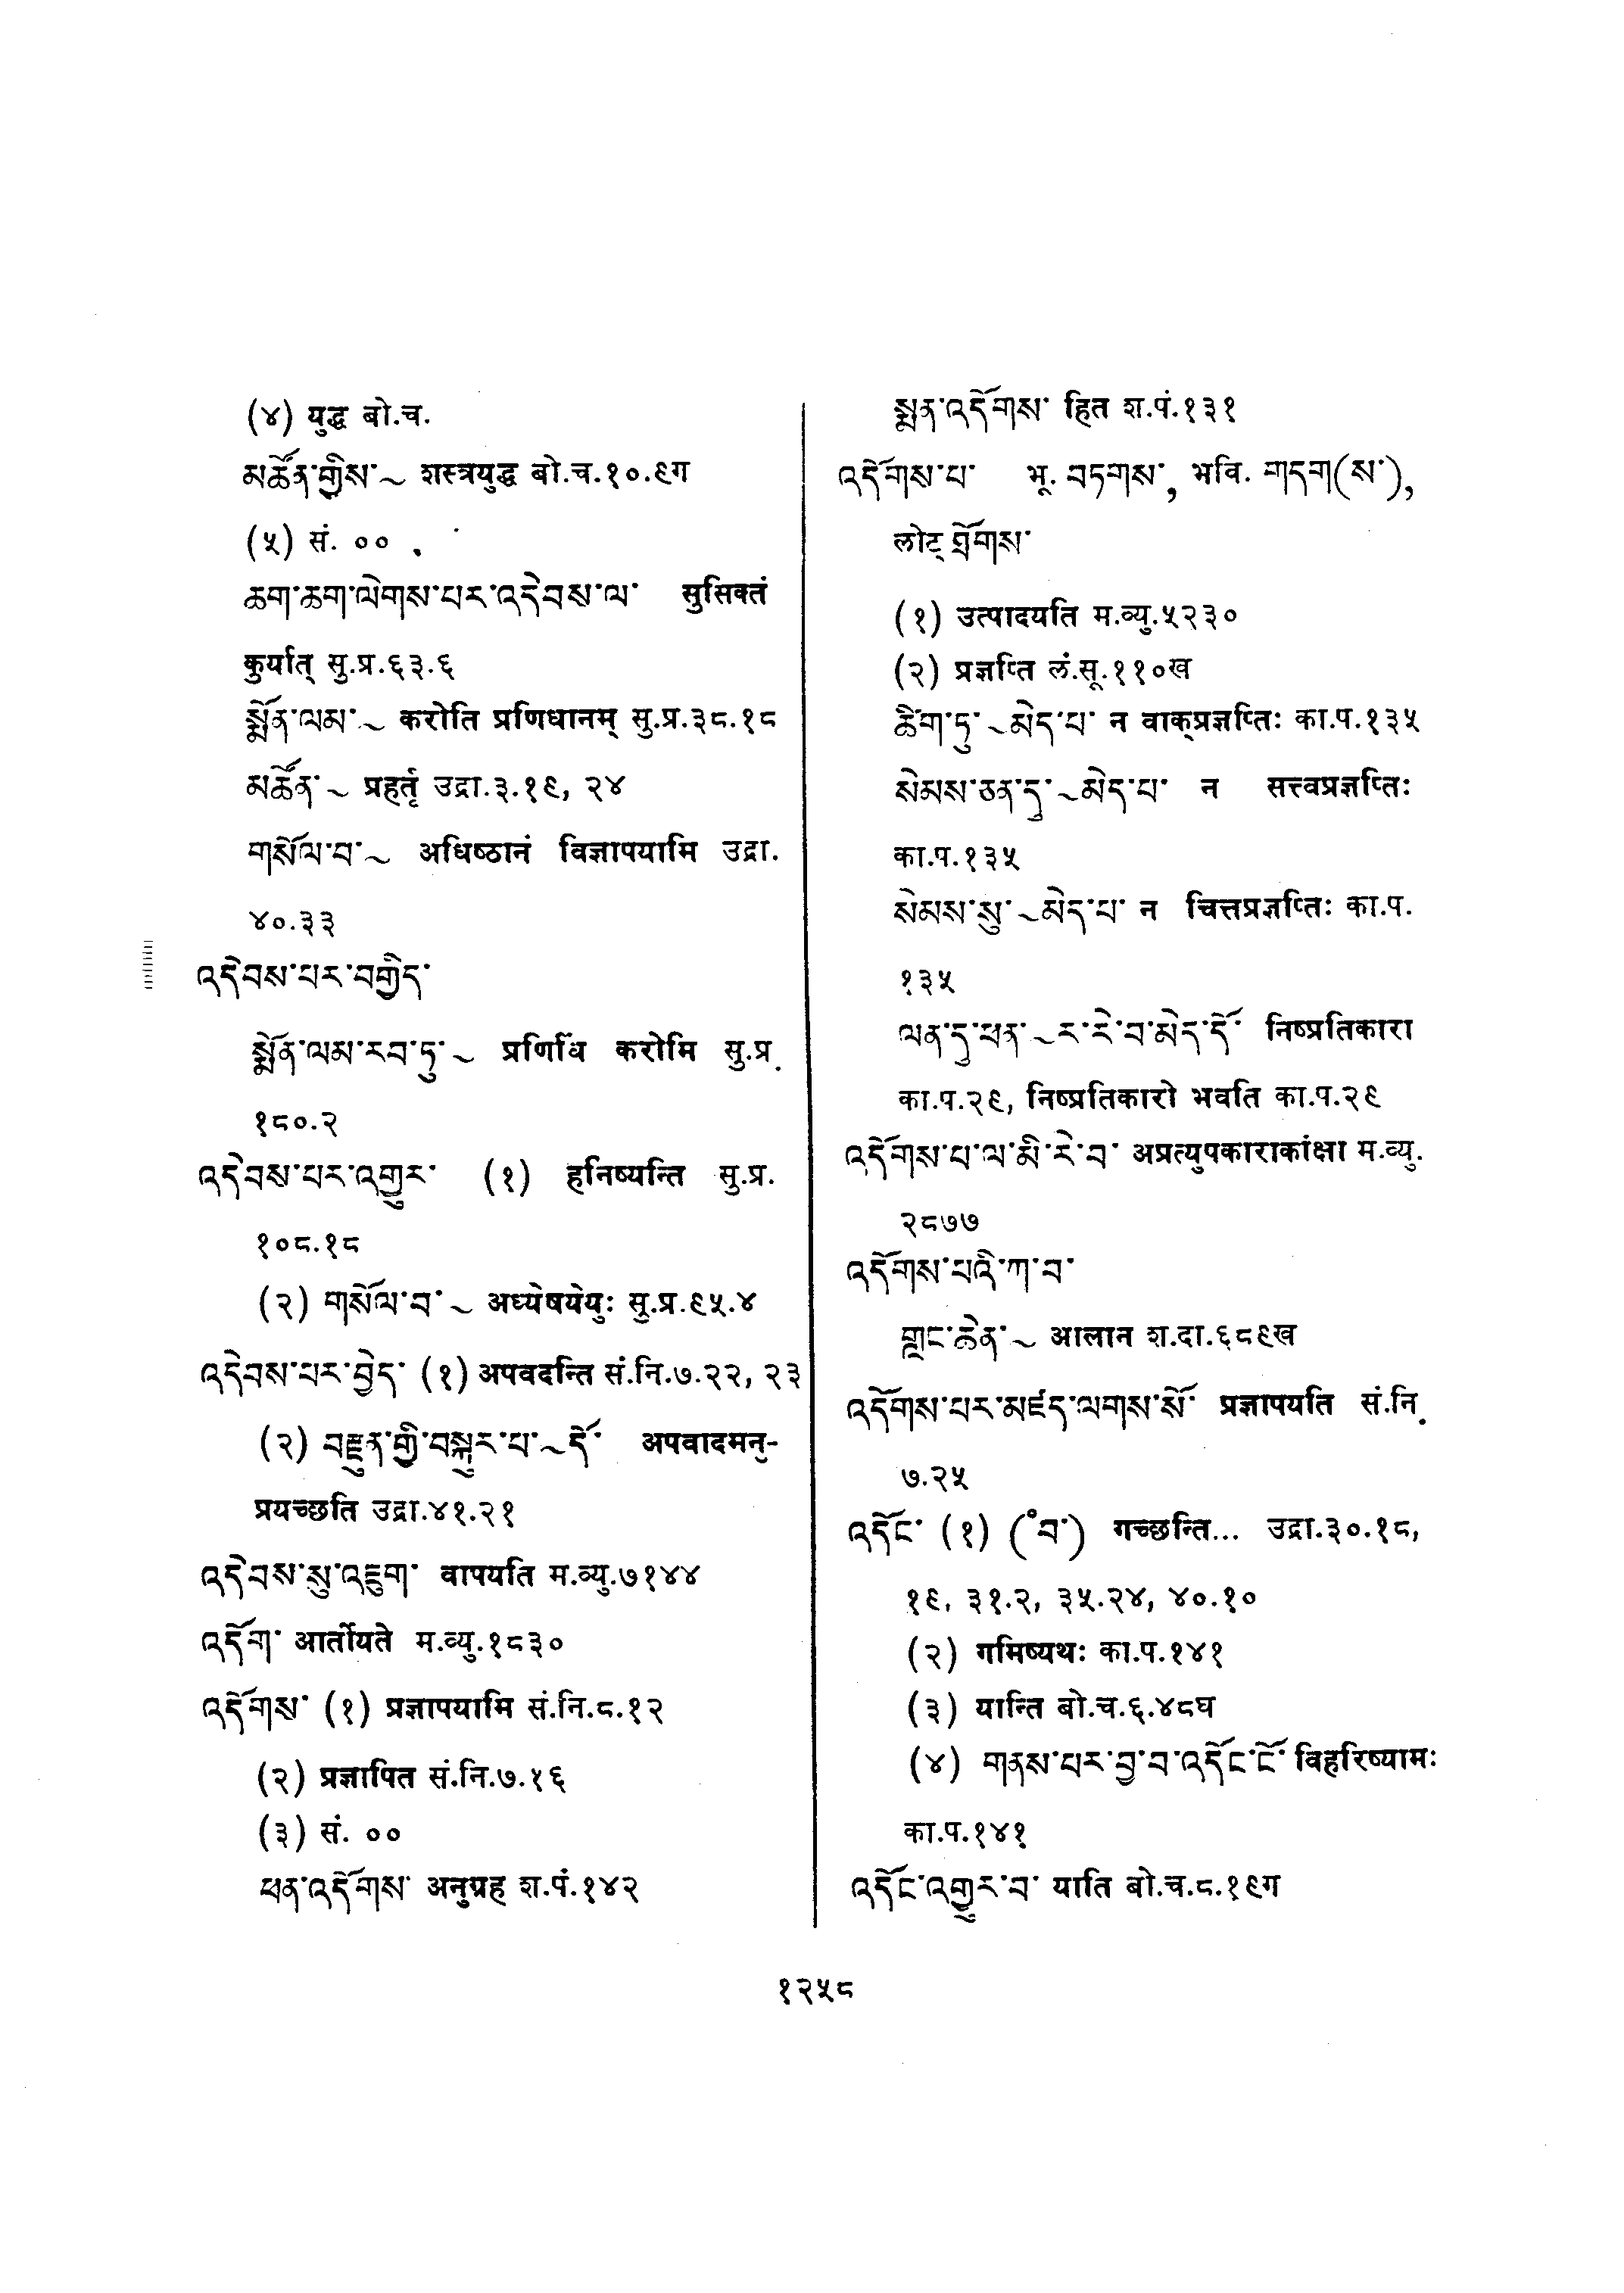 (४) युद्ध बो.च.
མཚོན་གྱིས་~ शस्त्रयुद्ध बो.च.१०.९ग
(५) सं. ००
ཆག་ཆག་ལེགས་པར་འདེབས་ལ་ सुसिक्तं
कुर्यात् सु.प्र.६३.६
སྨོན་ལམ་~ करोति प्रणिधानम् सु.प्र.३८.१८
མཚོན་~ प्रहर्तृ उद्रा.३.१९, २४
གསོལ་བ་~ अधिष्ठानं विज्ञापयामि उद्रा.
४०.३३
འདེབས་པར་བགྱིད་
སྨོན་ལམ་རབ་ཏུ་~ प्रणिधिं करोमि सु.प्र.
१८०.२
འདེབས་པར་འགྱུར་ (१) हनिष्यन्ति सु.प्र.
१०८.१८
(२) གསོལ་བ་~ अध्येषयेयुः सु.प्र.९५.४
འདེབས་པར་བྱེད་ (१) अपवदन्ति सं.नि.७.२२, २३
(२) བརྫུན་གྱི་བསྐུར་པ་~དོ་ अपवादमनु-
प्रयच्छति उद्रा.४१.२१
འདེབས་སུ་འཇུག་ वापयति म.व्यु.७१४४
འདོག་ आर्तोयते म.व्यु.१८३०
འདོགས་ (१) प्रज्ञापयामि सं.नि.८.१२
(२) प्रज्ञापित सं.नि.७.१६
(३) सं. ००
ཕན་འདོགས་ अनुग्रह श.पं.१४२
སྨན་འདོགས་ हित श.पं.१३१
འདོགས་པ་ भू. བཏགས་, भवि. གདག(ས་),
लोट् ཐོགས་
(१) उत्पादयति म.व्यु.५२३०
(२) प्रज्ञप्ति लं.सू.११०ख
ཚིག་ཏུ་~མེད་པ་ न वाक्प्रज्ञप्तिः का.प.१३५
སེམས་ཅན་དུ་~མེད་པ་ न सत्त्वप्रज्ञप्तिः
का.प.१३५
སེམས་སུ་~མེད་པ་ न चित्तप्रज्ञप्तिः का.प.
१३५
ལན་དུ་ཕན་~ར་རེ་བ་མེད་དོ་ निष्प्रतिकारा
का.प.२९, निष्प्रतिकारो भवति का.प.२९
འདོགས་པ་ལ་མི་རེ་བ་ अप्रत्युपकाराकांक्षा म.व्यु.
२८७७
འདོགས་པའི་ཀ་བ་
གླང་ཆེན་~ आलान श.दा.६८९ख
འདོགས་པར་མཛད་ལགས་སོ་ प्रज्ञापयति सं.नि.
७.२५
འདོང་ (१) (°བ་) गच्छन्ति... उद्रा.३०.१८,
१९, ३१.२, ३५.२४, ४०.१०
(२) गमिष्यथः का.प.१४१
(३) यान्ति बो.च.६.४८घ
(४) གནས་པར་བྱ་བ་འདོང་ངོ་ विहरिष्यामः
का.प.१४१
འདོང་འགྱུར་བ་ याति बो.च.८.१९ग
१२५८